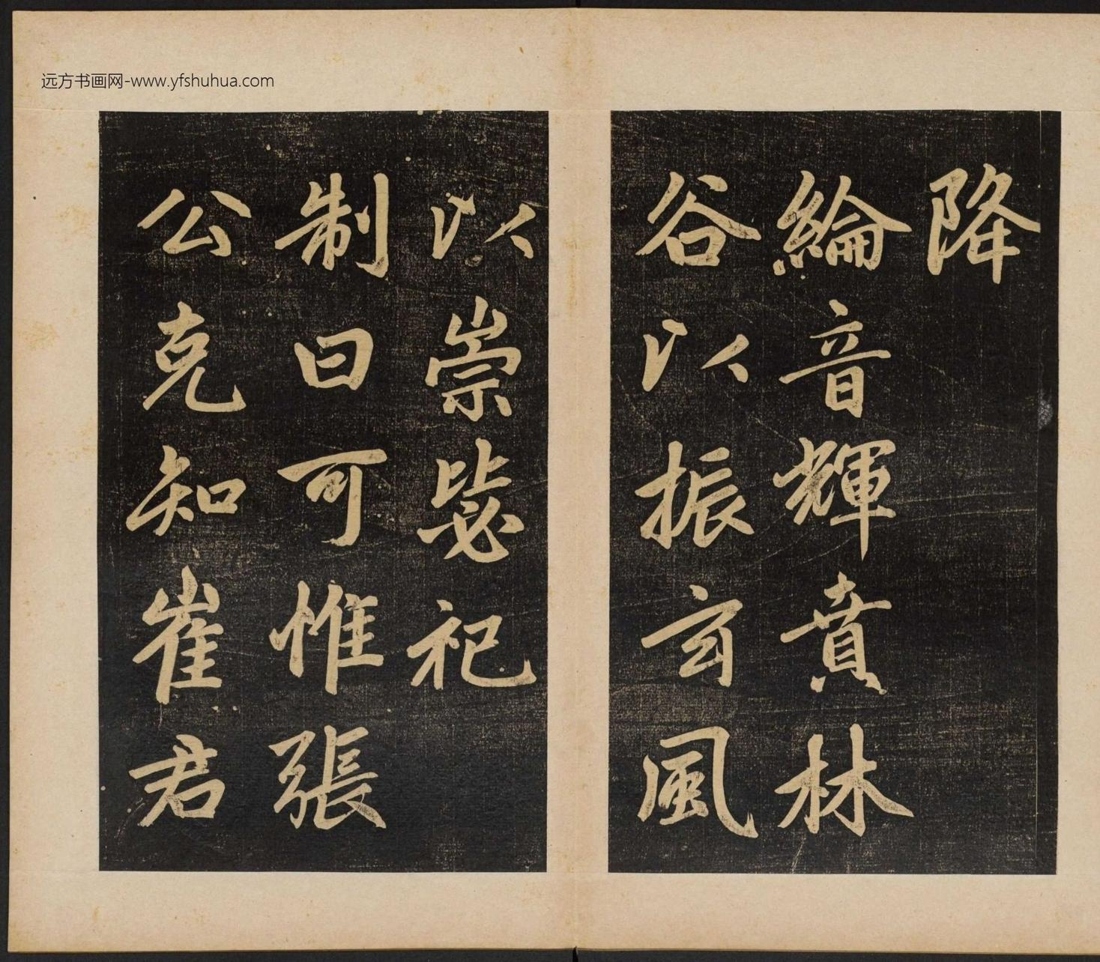 远方书画网-www.yfshuhua.com
降
綸音輝賁林
谷以振玄風
以崇毖祀
制曰可惟張
公克知崔君